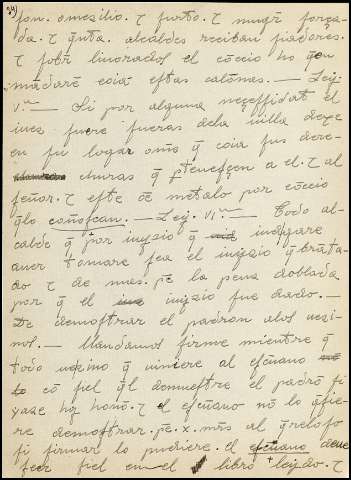 son. omezilio. τ furto. τ muger força-
da. τ q̄nta. alcaldes reciban fiadores.
τ sobr̄ linorados el cōceio ho qen
mādarē coia estas calōnas. — Ley.
vª — Si por alguna necessidat el
iues fuere fueras dela uilla dexe
en su logar om̄s q̄ coia sus dere-
churas q̄ ptenesçen a el. τ al
señor. τ este ōē metalo por cōceio
q̄lo conoscan. — Ley. viª — Todo al-
calde q̄ por iuyzio q̄ iudgare
auer tomare sea el iuyzio q̄brāta-
do τ de mas. pē la pena doblada
por q̄ el iuyzio fue dado. —
De demostrar el padron alos uezi-
nos. — Mandamos firme mientre q̄
todo uezino q̄ uiniere al escuano
cō fiel q̄l demuestre el padrō si
yaze hy hono. τ el escuano nō lo q̄sie-
re demostrar. pē. x. mr̄s al q̄reloso
si firmar lo pudiere. el escuano deue
seer fiel en el libro + leydo. τ